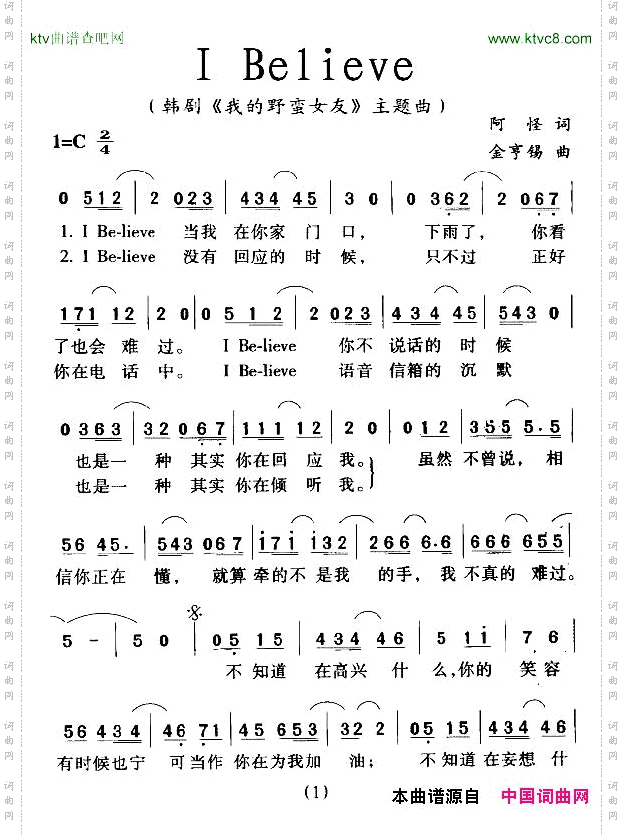 ktv曲谱查吧网
www.ktvc8.com
I Believe
(韩剧《我的野蛮女友》主题曲)
1=C 2/4
阿 怪 词
金亨锡 曲
0 512 | 2 023 | 434 45 | 3 0 | 0 362 | 2 067 |
1. I Be-lieve 当我 在你家 门 口， 下雨了， 你看
2. I Be-lieve 没有 回应的 时 候， 只不过 正好
171 12 | 2 0 | 0 5 1 2 | 2 023 | 4 3 4 45 | 543 0 |
了也会 难过。 I Be-lieve 你不 说话的 时 候
你在电 话中。 I Be-lieve 语音 信箱的 沉 默
0 363 | 32 067 | 111 12 | 2 0 | 0 12 355 5.5 |
也是一 种 其实 你在回 应 我。 虽然 不曾说， 相
也是一 种 其实 你在倾 听 我。
56 45. | 543 067 | 171 132 | 266 6.6 | 666 655 |
信你正在 懂， 就算 牵的不 是我 的手， 我 不真的 难过。
5 - | 5 0 | 05 15 | 434 46 | 5 1 1 | 7 6 |
不 知道 在高兴 什 么,你的 笑 容
56 434 | 46 71 | 45 345 | 32 2 | 05 15 | 434 46 |
有时候也宁 可当作 你在为我加 油； 不 知道 在妄想 什
(1)
本曲谱源自 中国词曲网